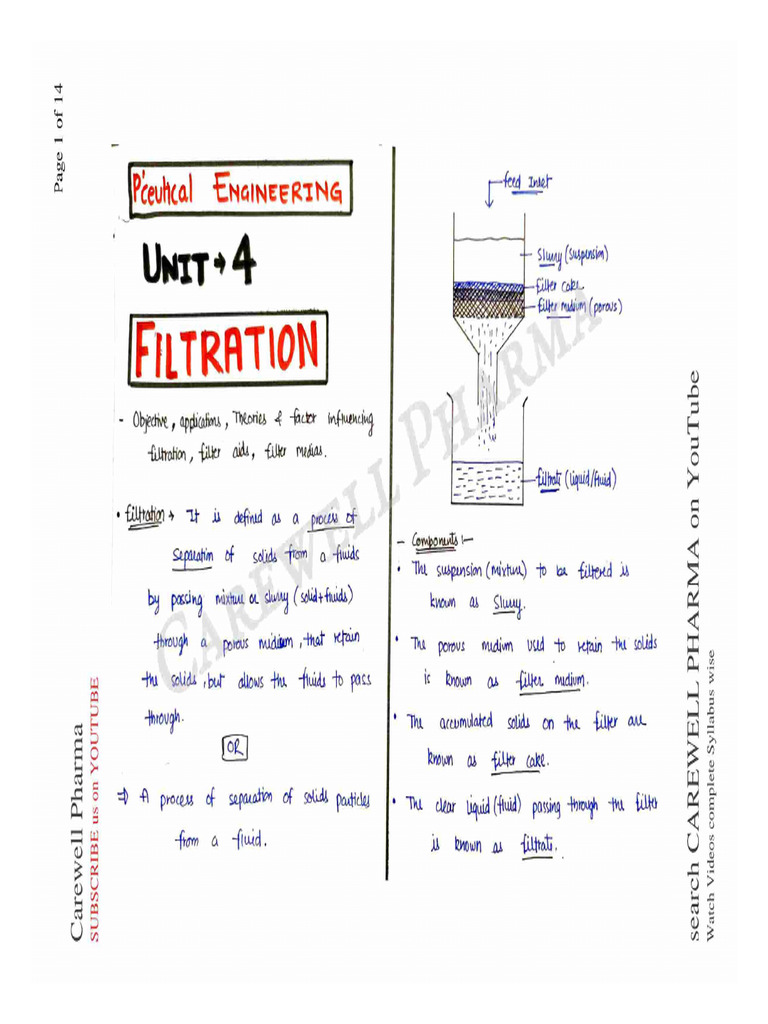 Page 1 of 14
P'ceutical ENGINEERING
UNIT → 4
FILTRATION
- Objective, applications, Theories & factor influencing
filtration, filter aids, filter medias.
• filtration → It is defined as a process of
Separation of solids from a fluids
by passing mixture or slurry (solid+fluids)
through a porous medium, that retain
the solids, but allows the fluids to pass
through.
OR
⇒ A process of separation of solids particles
from a fluid.
feed Inlet
Slurry (suspension)
filter cake
filter medium (porous)
filtrate (liquid/fluid)
- Components :-
• The suspension (mixture) to be filtered is
known as Slurry.
• The porous medium used to retain the solids
is known as filter medium.
• The accumulated solids on the filter are
known as filter cake.
• The clear liquid (fluid) passing through the filter
is known as filtrate.
CAREWELL PHARMA
Carewell Pharma
SUBSCRIBE us on YOUTUBE
search CAREWELL PHARMA on YouTube
Watch Videos complete Syllabus wise